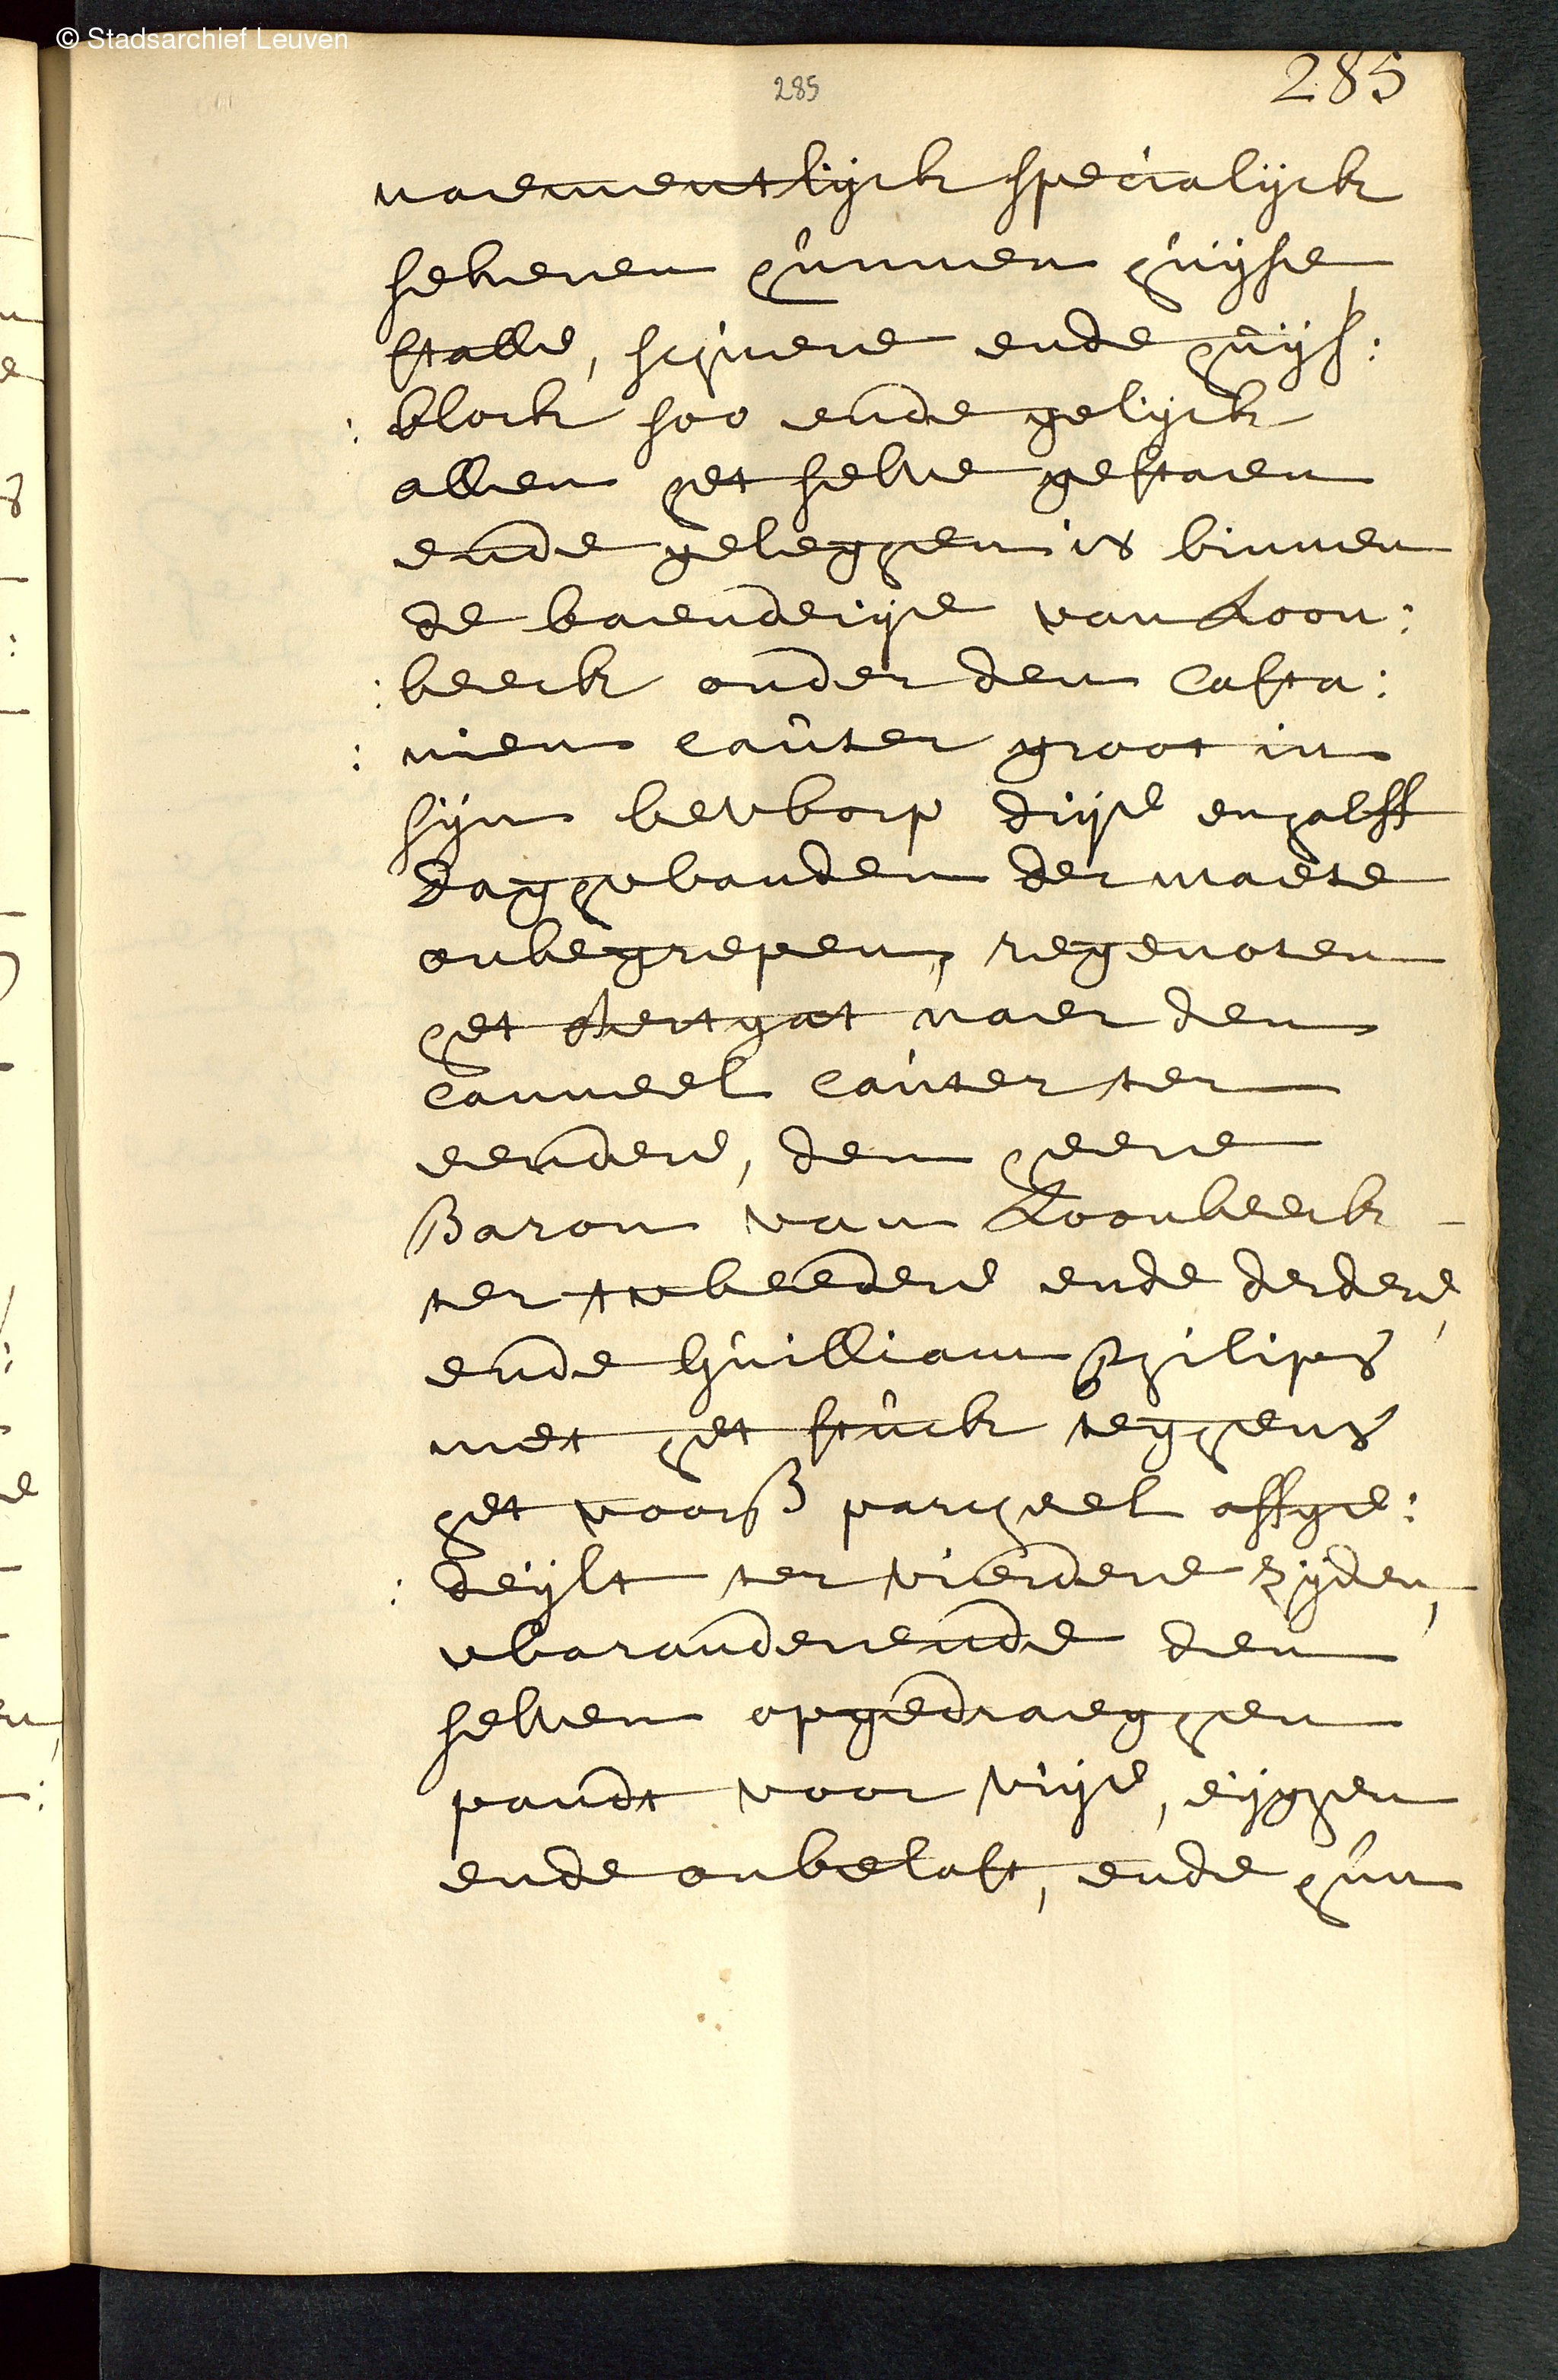 © Stadsarchief Leuven
285
285
naementlijck specialijck
selveren hunnen huijse
stalle, schuere ende huijs:
: block soo ende gelijck
allen het selve gestaen
ende geleghen is binnen
de baenderije van Loon:
: beeck onder den Casta:
: nien cauter groot in
sijn bewborp drije enhalff
daghwbanden der maete
onbegrepen, regenoten
het gat naer den
canneel cauter ter
eendere, den heere
Baron van Loonbeeck
ter twbeedere ende derdere,
ende Guilliam Philips
met het stuck teghens
het voors parcheel affge:
: deijlt ter vierdere zijden,
wbaranderende den
selven opgedraeghen
pandt voor vrije, eijghen
ende onbelast, ende hun